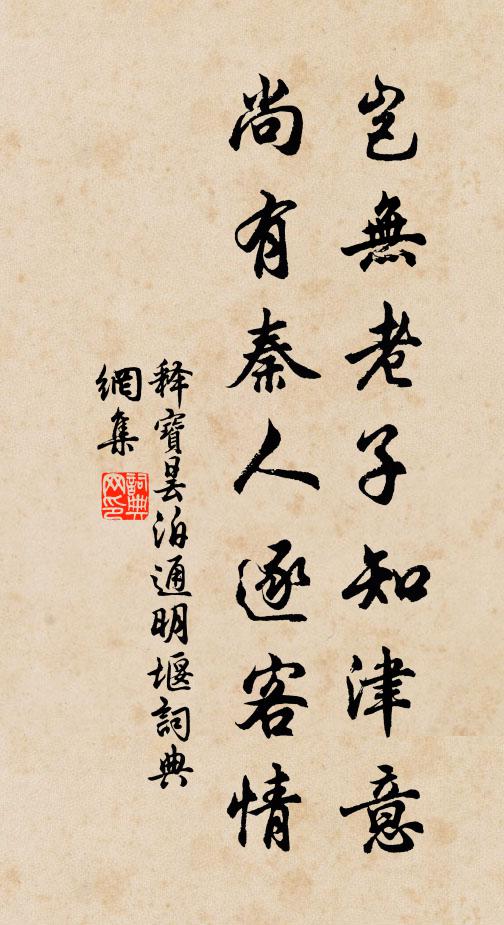 豈無老子知津意
尚有秦人逐客情
釋寶曇泊通明堰詞典
網集
詞典網印